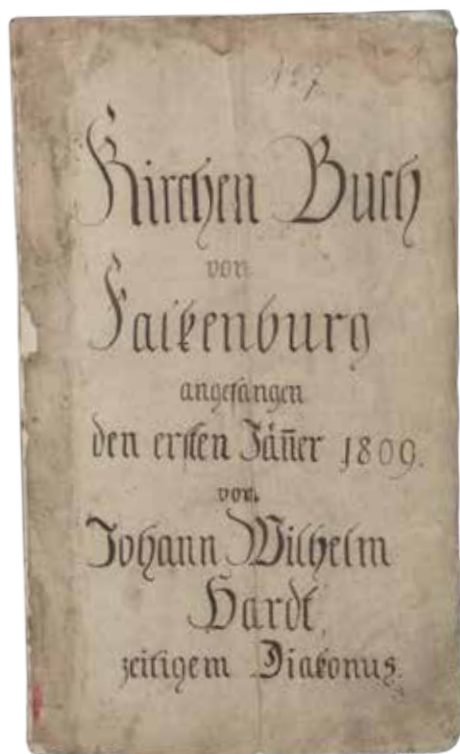 127
Kirchen Buch
von
Falkenburg
angefangen
den ersten Jäñer 1809.
von
Johann Wilhelm
Hardt,
zeitigem Diakonus.